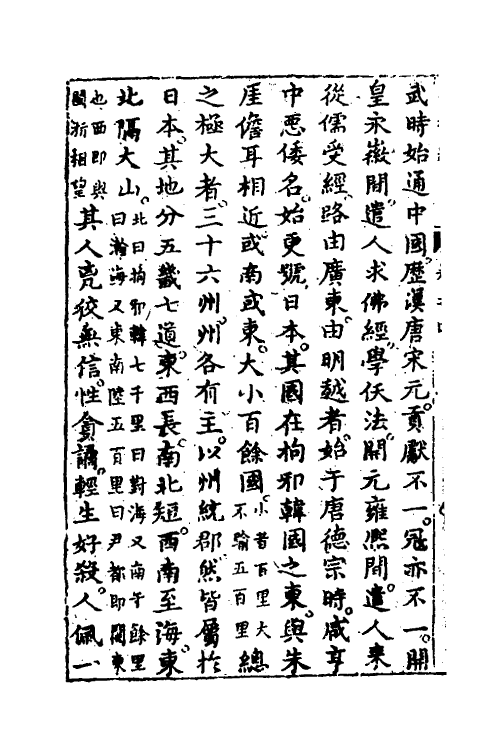 武時始通中國歷漢唐宋元貢獻不一冠亦不一開
皇永徽間遣人求佛經學仸法開元雍熈間遣人来
從儒受經路由廣東由明越者始于唐德宗時咸亨
中惡倭名始更號日本其國在拘邪韓國之東與朱
厓儋耳相近或南或東大小百餘國小者百里大
不踰五百里總
之極大者三十六州州各有主以州統郡然皆屬於
日本其地分五畿七道東西長南北短西南至海東
北隔大山北曰拘邪韓七千里曰對海又南千餘里
曰瀚海又東南陸五百里曰尹都即関東
也西即與
関祈相望其人㒵狡無信性貪譎輕生好殺人佩一